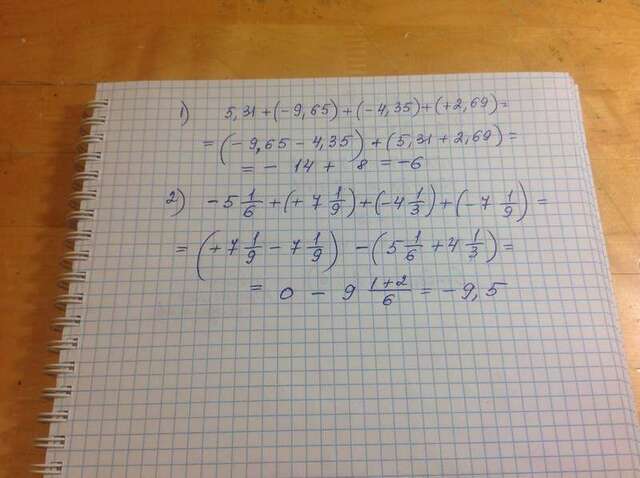 1) 5,31 + (-9,65) + (-4,35) + (+2,69) =
= (-9,65 - 4,35) + (5,31 + 2,69) =
= - 14 + 8 = -6
2) -5 1/6 + (+ 7 1/9) + (-4 1/3) + (-7 1/9) =
= (+7 1/9 - 7 1/9) - (5 1/6 + 4 1/3) =
= 0 - 9 (1+2)/6 = -9,5